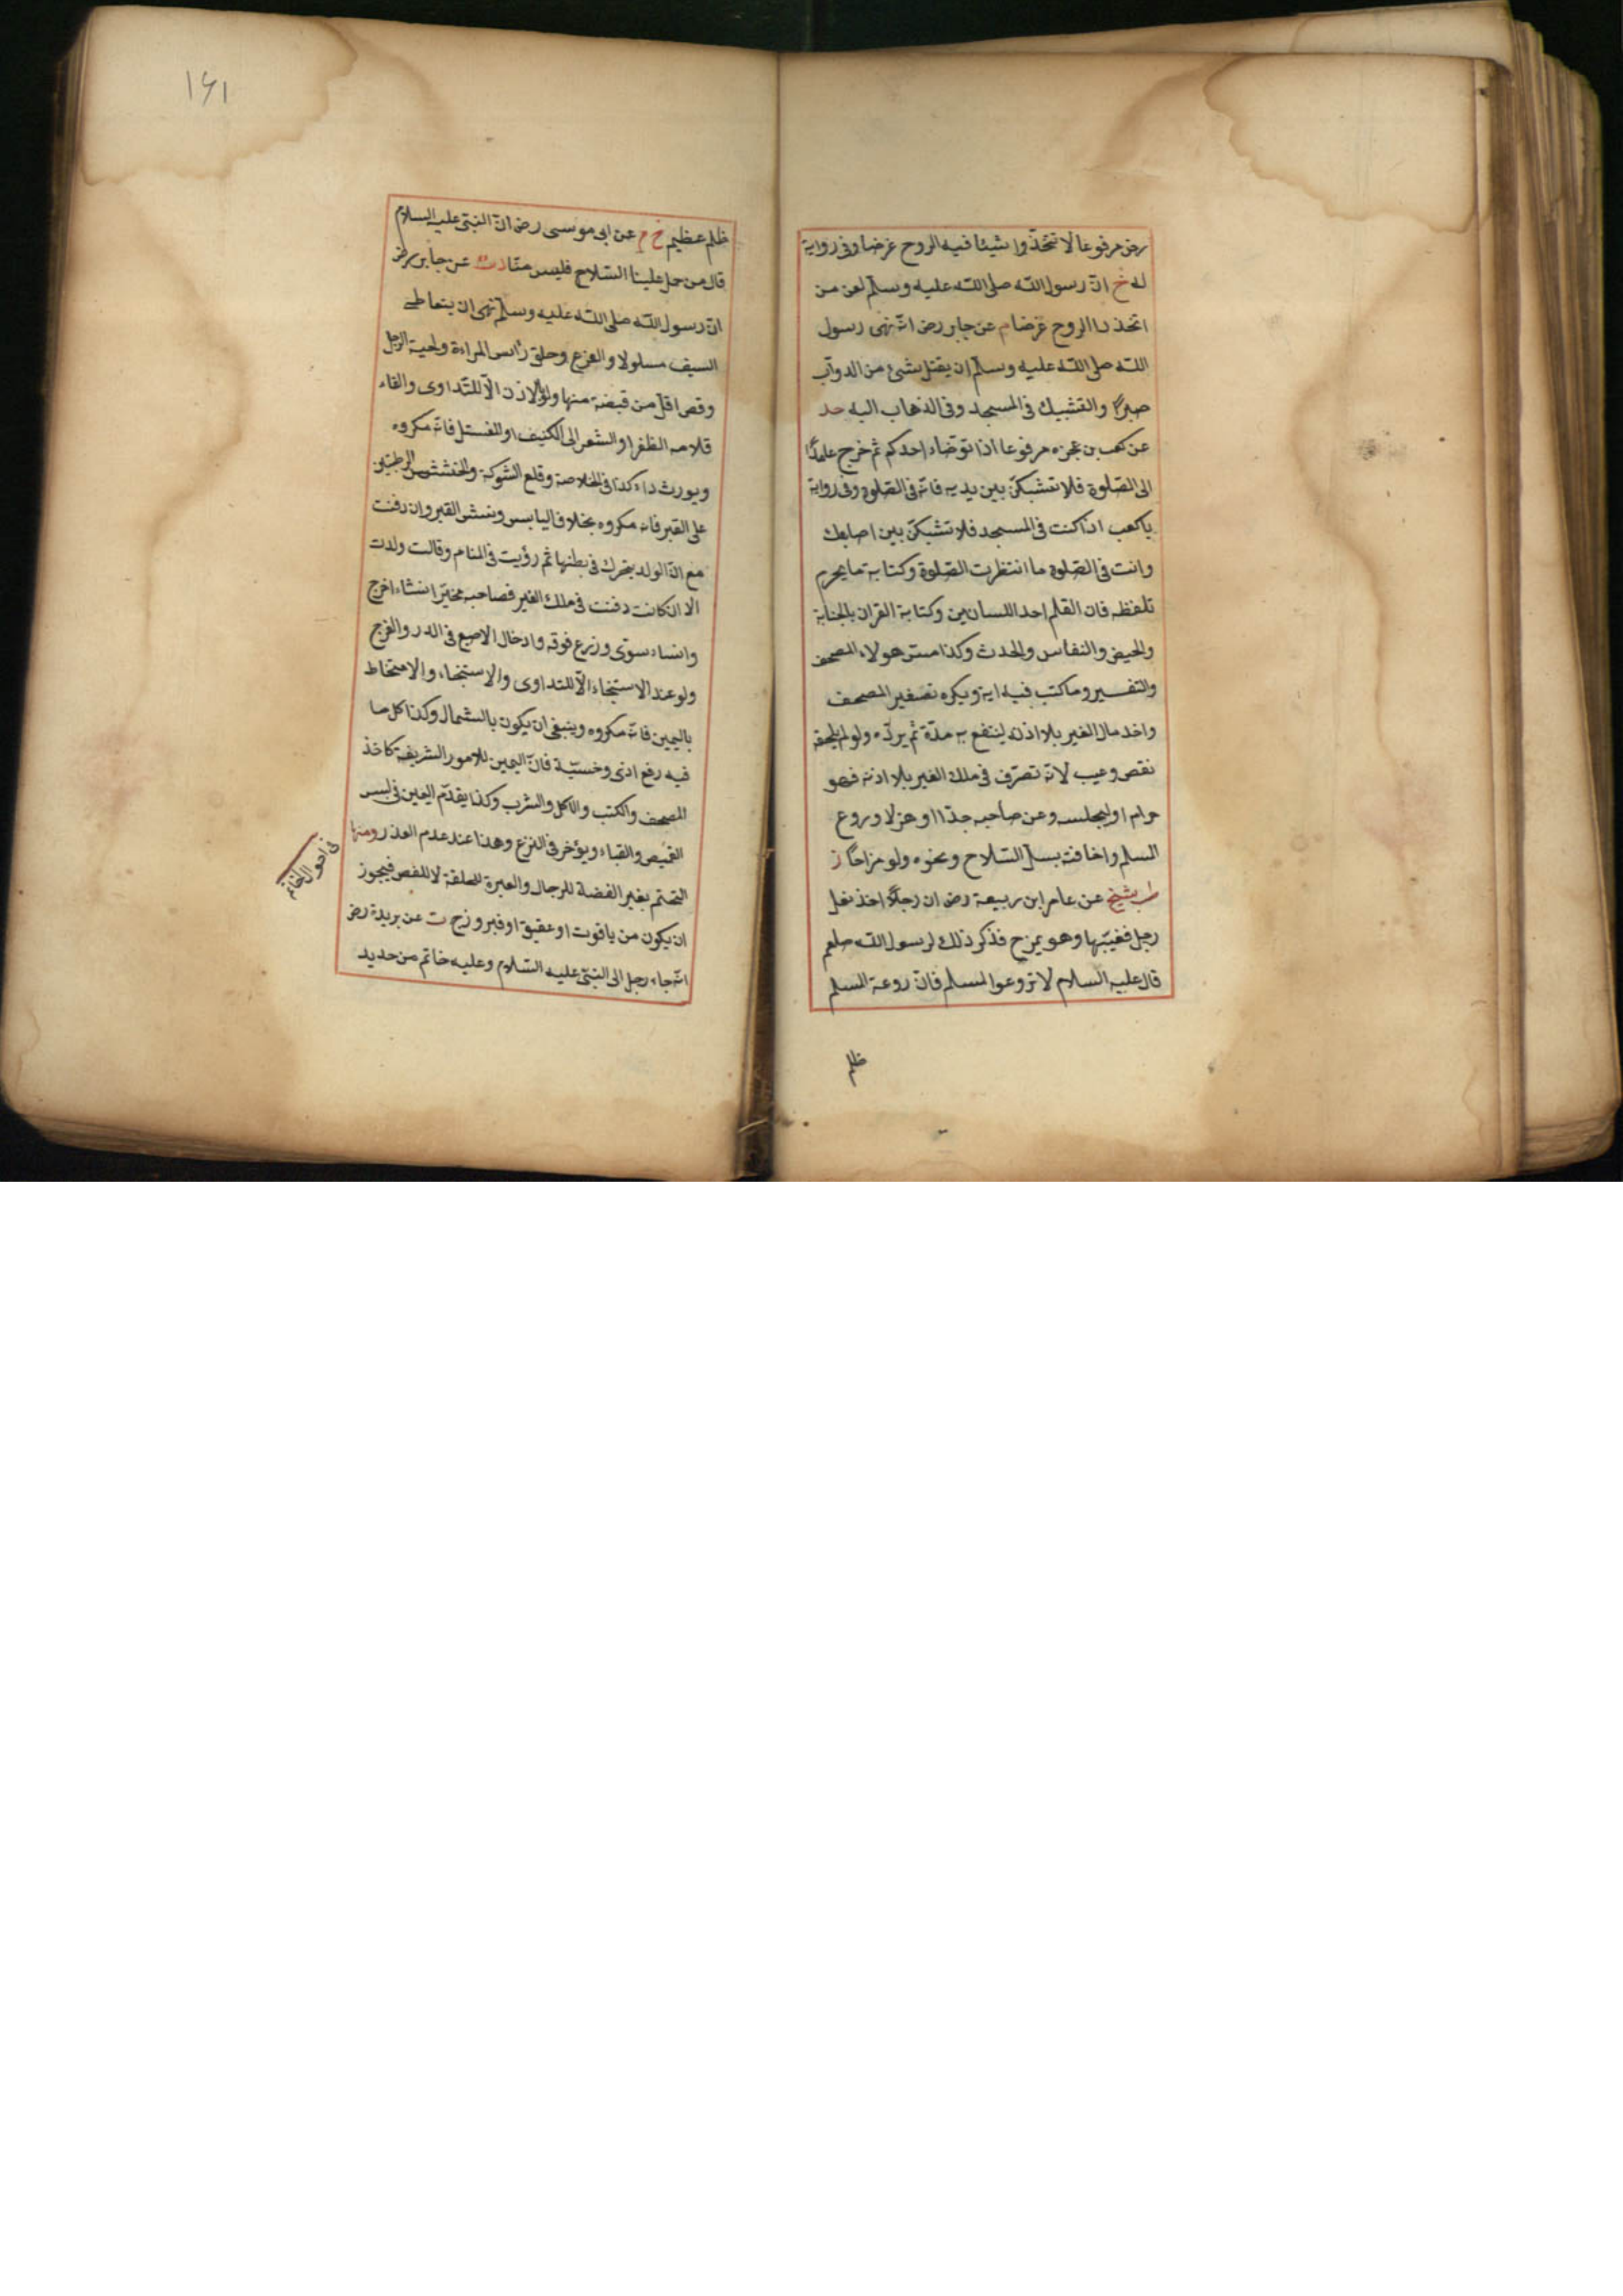 رض مرفوعا لا تتخذوا شيئا فيه الروح غرضا وفى رواية
له خ ان رسول الله صلى الله عليه وسلم لعن من
اتخذ ذا الروح غرضا م عن جابر رض انه نهى رسول
الله صلى الله عليه وسلم ان يقتل شئ من الدواب
صبرًا والتشبيك فى المسجد وفى الذهاب اليه حد
عن كعب بن عجزه مرفوعا اذا توضاء احدكم ثم خرج عامدًا
الى الصلوة فلا تشبكن بين يديه فانه فى الصلوة وفى رواية
ياكعب اذا كنت فى المسجد فلا تشبكن بين اصابعك
وانت فى الصلوة ما انتظرت الصلوة وكتابة ما يحرم
تلفظه فان القلم احد اللسانين وكتابة القران بالجنابة
والحيض والنفاس والحدث وكذا مس هولاء المصحف
والتفسير وما كتب فيه اية ويكره تصغير المصحف
واخذ مال الغير بلا اذنه لينتفع به مدّة ثم يردّه ولو لم يلحقه
نقص وعيب لانه تصرّف فى ملك الغير بلا اذنه فهو
حرام او ليجلسه وعن صاحبه جدّا او هزلا وروع
المسلم واخافته بسلّ السّلاح ونحوه ولو مزاحًا ز
طب شيخ عن عامر ابن ربيعة رض ان رجلًا اخذ نعل
رجل فغيّبها وهو يمزح فذكر ذلك لرسول الله صلعم
قال عليه السلام لا تروعوا المسلم فانّ روعة المسلم
ظلم
١٦١
ظلم عظيم خ م عن ابى موسى رض انّ النبىّ عليه السلام
قال من حمل علينا السّلاح فليس منّا دت عن جابر رض
انّ رسول الله صلى الله عليه وسلم نهى ان يتعاطى
السيف مسلولا والقزع وحلق رأس المراءة ولحية الرجل
وقص اقلّ من قبضة منها ولو بالاذن الّا للتّداوى والقاء
قلامه الظفر او الشعر الى الكنيف او المغتسل فانه مكروه
ويورث داء كذا فى الخلاصة وقلع الشوكة والحشيش الرطبتين
على القبر فانه مكروه بخلاف اليابس ونبش القبر وان دفنت
مع انّ الولد يتحرك فى بطنها ثم رؤيت فى المنام وقالت ولدت
الا ان كانت دفنت فى ملك الغير فصاحبه مخيّر ان شاء اخرج
وان شاء سوّى وزرع فوقه وادخال الاصبع فى الدبر والفرج
ولو عند الاستنجاء الّا للتداوى والاستنجاء والامتخاط
باليمين فانه مكروه وينبغى ان يكون بالشمال وكذا كل ما
فيه رفع اذى وخسّية فانّ اليمين للامور الشريفة كاخذ
المصحف والكتب والاكل والشرب وكذا يقدّم اليمين فى لبس
القميص والقباء ويؤخر فى النزع وهذا عند عدم العذر ومنها
التختم بغير الفضة للرجال والعبرة للحلقة لا للفص فيجوز
ان يكون من ياقوت او عقيق او فيروزج ت عن بريدة رض
انه جاء رجل الى النبىّ عليه السّلام وعليه خاتم من حديد
فى احوال الخاتم